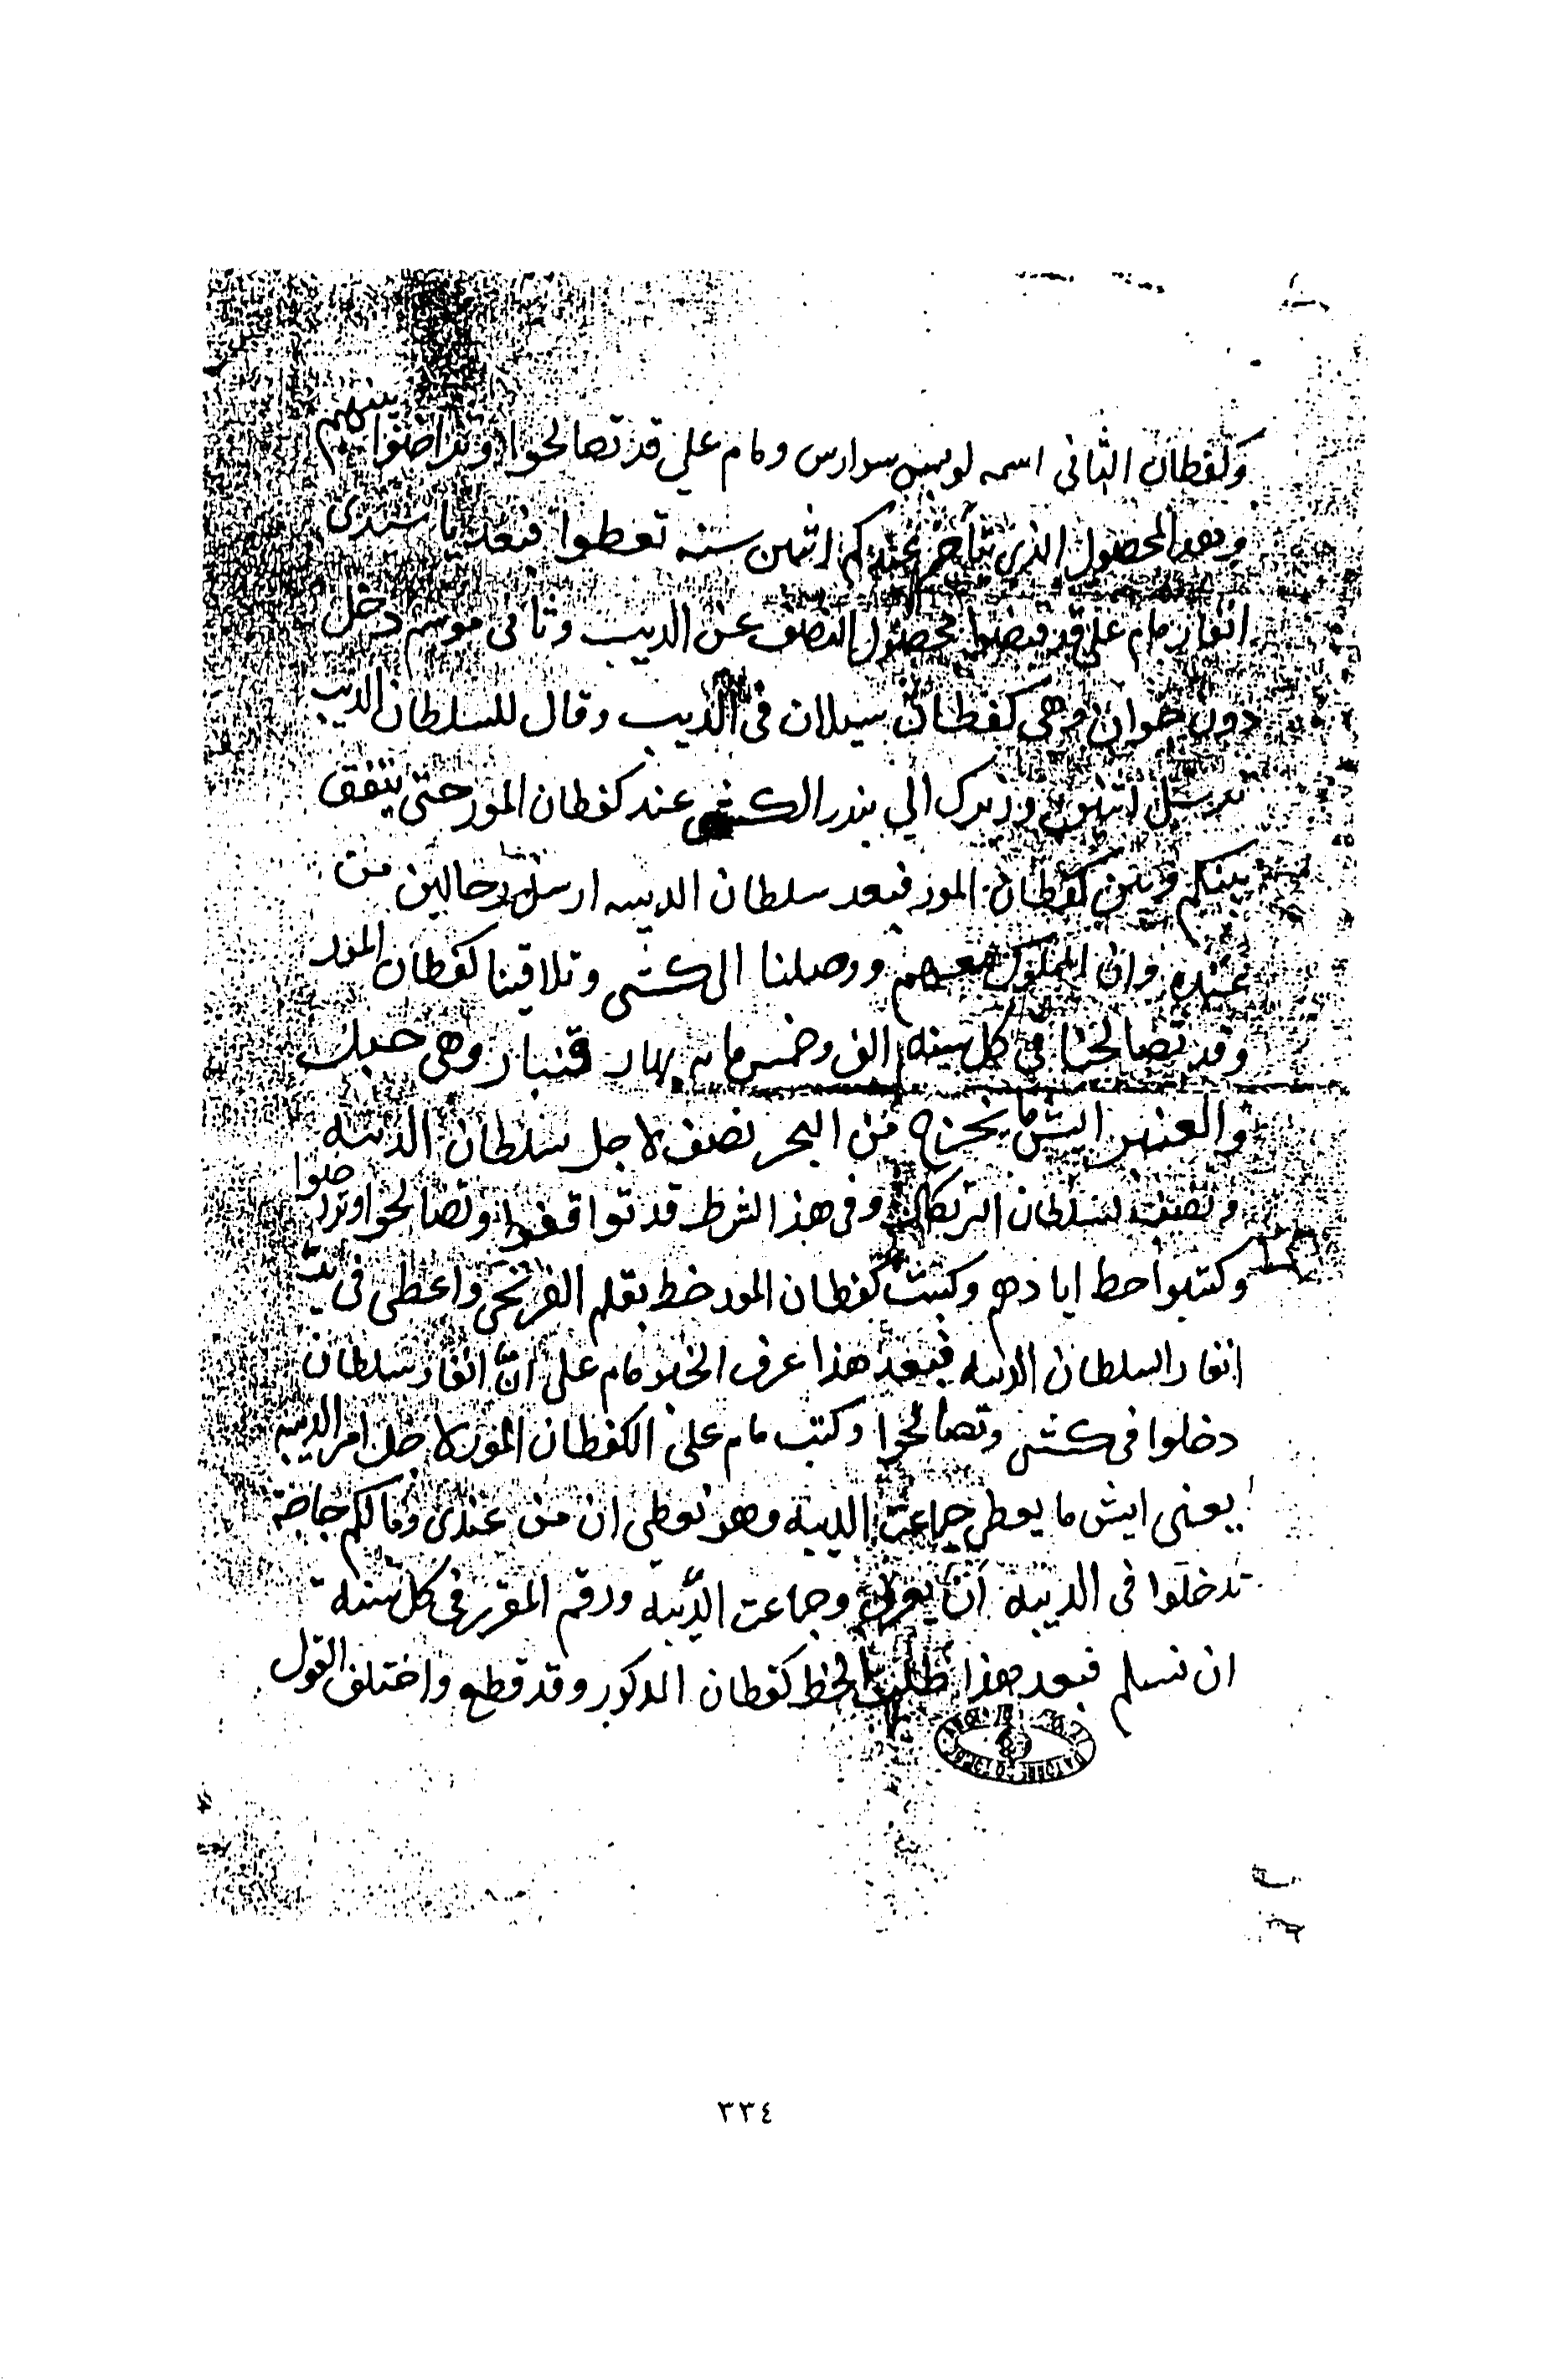 وكفطان الثاني اسمه لوبس سوارس ومام علي قد تصالحوا وتراضوا بينهم
وهذا المحصول الذي تتأخر عندكم اثنين سنه تعطوا فبعد يا سيدي
انفار مام علي قد قبضوا محصول النصف عن الديب وثاني موسم دخل
دون جوان وهي كفطان سيلان في الديب وقال للسلطان الديب
ترسل اثنين وزيرك الي بندر الكشي عند كفطان المور حتى يتفق
بينكم وبين كفطان المور فبعد سلطان الديبه ارسل رجالين من
عنده وان المملوك معهم ووصلنا الى كشي وتلاقينا كفطان المور
وقد تصالحنا في كل سنه الف وخمس مايه بهار قنبار وهي حبل
والعنبر ايش ما يخرج من البحر نصف لاجل سلطان الديبه
ونصف لسلطان البرتكال وفي هذا الشرط قد توافقوا وتصالحوا وتراضوا
وكتبوا خط ايادهم وكتبت كفطان المور خط بقلم الفرنجي واعطى في يد
انفار السلطان الديبه فبعد هذا عرف الخبر مام علي ان انفار سلطان
دخلوا في كشي وتصالحوا وكتب مام علي الكفطان المور لاجل امر الديبه
يعني ايش ما يعطي جماعت الديبة وهو نعطي ان من عندي ومالكم حاجة
تدخلوا في الديبة ان يعرف وجماعت الديبة ورقم المقرر في كل سنه
ان نسلم فبعد هذا طلب الخط كفطان المذكور وقد قطع واختلف القول
٣٣٤